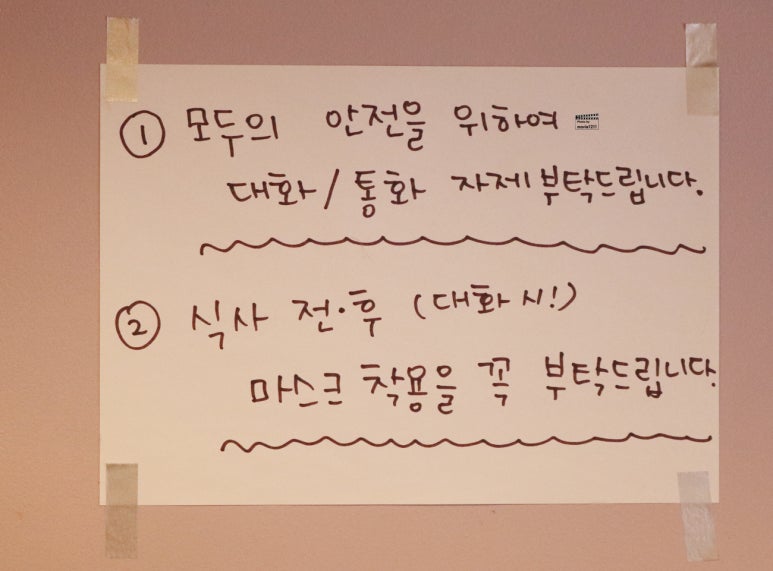 ① 모두의 안전을 위하여
대화/통화 자제 부탁드립니다.
② 식사 전·후 (대화 시!)
마스크 착용을 꼭 부탁드립니다.